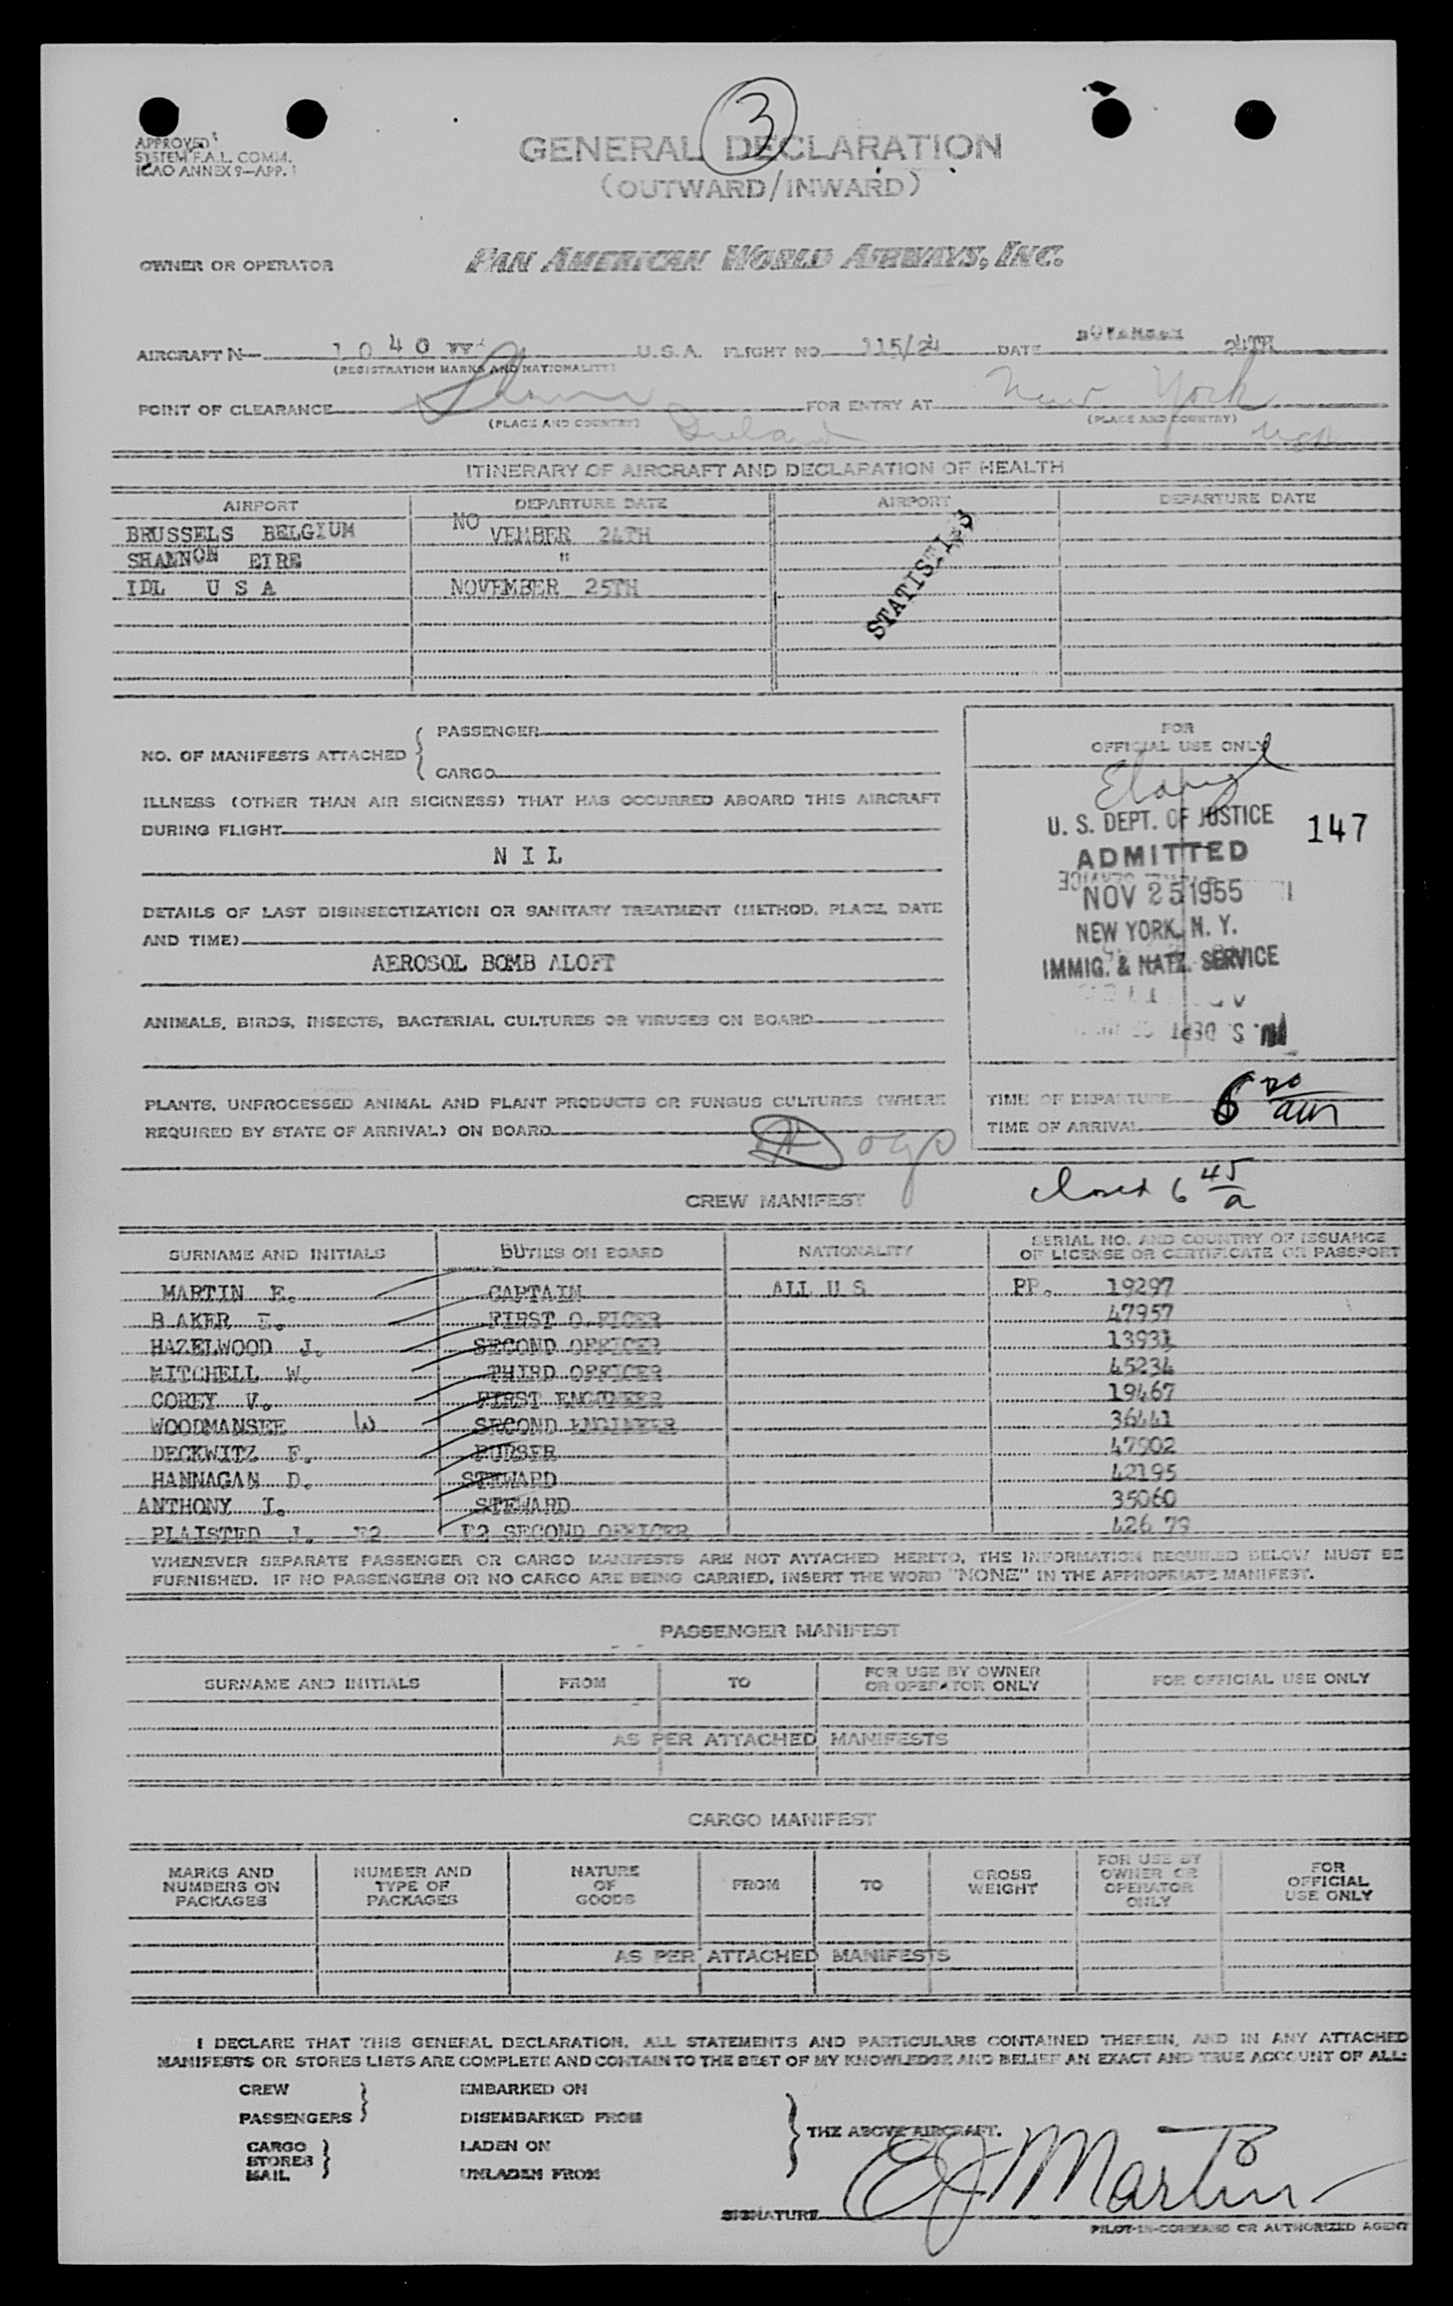 3
APPROVED
SYSTEM F.A.L. COMM.
ICAO ANNEX 9—APP. 1
GENERAL DECLARATION
(OUTWARD/INWARD)
OWNER OR OPERATOR PAN AMERICAN WORLD AIRWAYS, INC.
AIRCRAFT N— 1040 U.S.A. FLIGHT NO 115/24 DATE NOVEMBER 24TH
(REGISTRATION MARKS AND NATIONALITY)
POINT OF CLEARANCE Shannon FOR ENTRY AT New York
(PLACE AND COUNTRY) Ireland (PLACE AND COUNTRY) USA
ITINERARY OF AIRCRAFT AND DECLARATION OF HEALTH
AIRPORT DEPARTURE DATE AIRPORT DEPARTURE DATE
BRUSSELS BELGIUM NOVEMBER 24TH
SHANNON EIRE "
IDL U S A NOVEMBER 25TH
STATISTICS
NO. OF MANIFESTS ATTACHED { PASSENGER
CARGO
ILLNESS (OTHER THAN AIR SICKNESS) THAT HAS OCCURRED ABOARD THIS AIRCRAFT
DURING FLIGHT
N I L
DETAILS OF LAST DISINSECTIZATION OR SANITARY TREATMENT (METHOD, PLACE, DATE
AND TIME)
AEROSOL BOMB ALOFT
ANIMALS, BIRDS, INSECTS, BACTERIAL CULTURES OR VIRUSES ON BOARD
PLANTS, UNPROCESSED ANIMAL AND PLANT PRODUCTS OR FUNGUS CULTURES (WHERE
REQUIRED BY STATE OF ARRIVAL) ON BOARD
Dogs
FOR
OFFICIAL USE ONLY
U. S. DEPT. OF JUSTICE
147
ADMITTED
NOV 25 1955
NEW YORK, N. Y.
IMMIG. & NATZ. SERVICE
TIME OF DEPARTURE
TIME OF ARRIVAL 6 20 am
Closed 6 45 a
CREW MANIFEST
SURNAME AND INITIALS DUTIES ON BOARD NATIONALITY SERIAL NO. AND COUNTRY OF ISSUANCE
OF LICENSE OR CERTIFICATE OR PASSPORT
MARTIN E. CAPTAIN ALL U S PP. 19297
BAKER E. FIRST OFFICER 47957
HAZELWOOD J. SECOND OFFICER 13931
MITCHELL W. THIRD OFFICER 45234
COREY V. FIRST ENGINEER 19467
WOODMANSEE W SECOND ENGINEER 36441
DECKWITZ F. PURSER 47902
HANNAGAN D. STEWARD 42195
ANTHONY I. STEWARD 35060
PLAISTED J. F2 F2 SECOND OFFICER 426 79
WHENEVER SEPARATE PASSENGER OR CARGO MANIFESTS ARE NOT ATTACHED HERETO, THE INFORMATION REQUIRED BELOW MUST BE
FURNISHED. IF NO PASSENGERS OR NO CARGO ARE BEING CARRIED, INSERT THE WORD "NONE" IN THE APPROPRIATE MANIFEST.
PASSENGER MANIFEST
SURNAME AND INITIALS FROM TO FOR USE BY OWNER
OR OPERATOR ONLY FOR OFFICIAL USE ONLY
AS PER ATTACHED MANIFESTS
CARGO MANIFEST
MARKS AND
NUMBERS ON
PACKAGES
NUMBER AND
TYPE OF
PACKAGES
NATURE
OF
GOODS
FROM
TO
GROSS
WEIGHT
FOR USE BY
OWNER OR
OPERATOR
ONLY
FOR
OFFICIAL
USE ONLY
AS PER ATTACHED MANIFESTS
I DECLARE THAT THIS GENERAL DECLARATION, ALL STATEMENTS AND PARTICULARS CONTAINED THEREIN, AND IN ANY ATTACHED
MANIFESTS OR STORES LISTS ARE COMPLETE AND CONTAIN TO THE BEST OF MY KNOWLEDGE AND BELIEF AN EXACT AND TRUE ACCOUNT OF ALL:
CREW EMBARKED ON
PASSENGERS DISEMBARKED FROM
THE ABOVE AIRCRAFT.
CARGO LADEN ON
STORES
MAIL UNLADEN FROM
SIGNATURE E J Martin
PILOT-IN-COMMAND OR AUTHORIZED AGENT